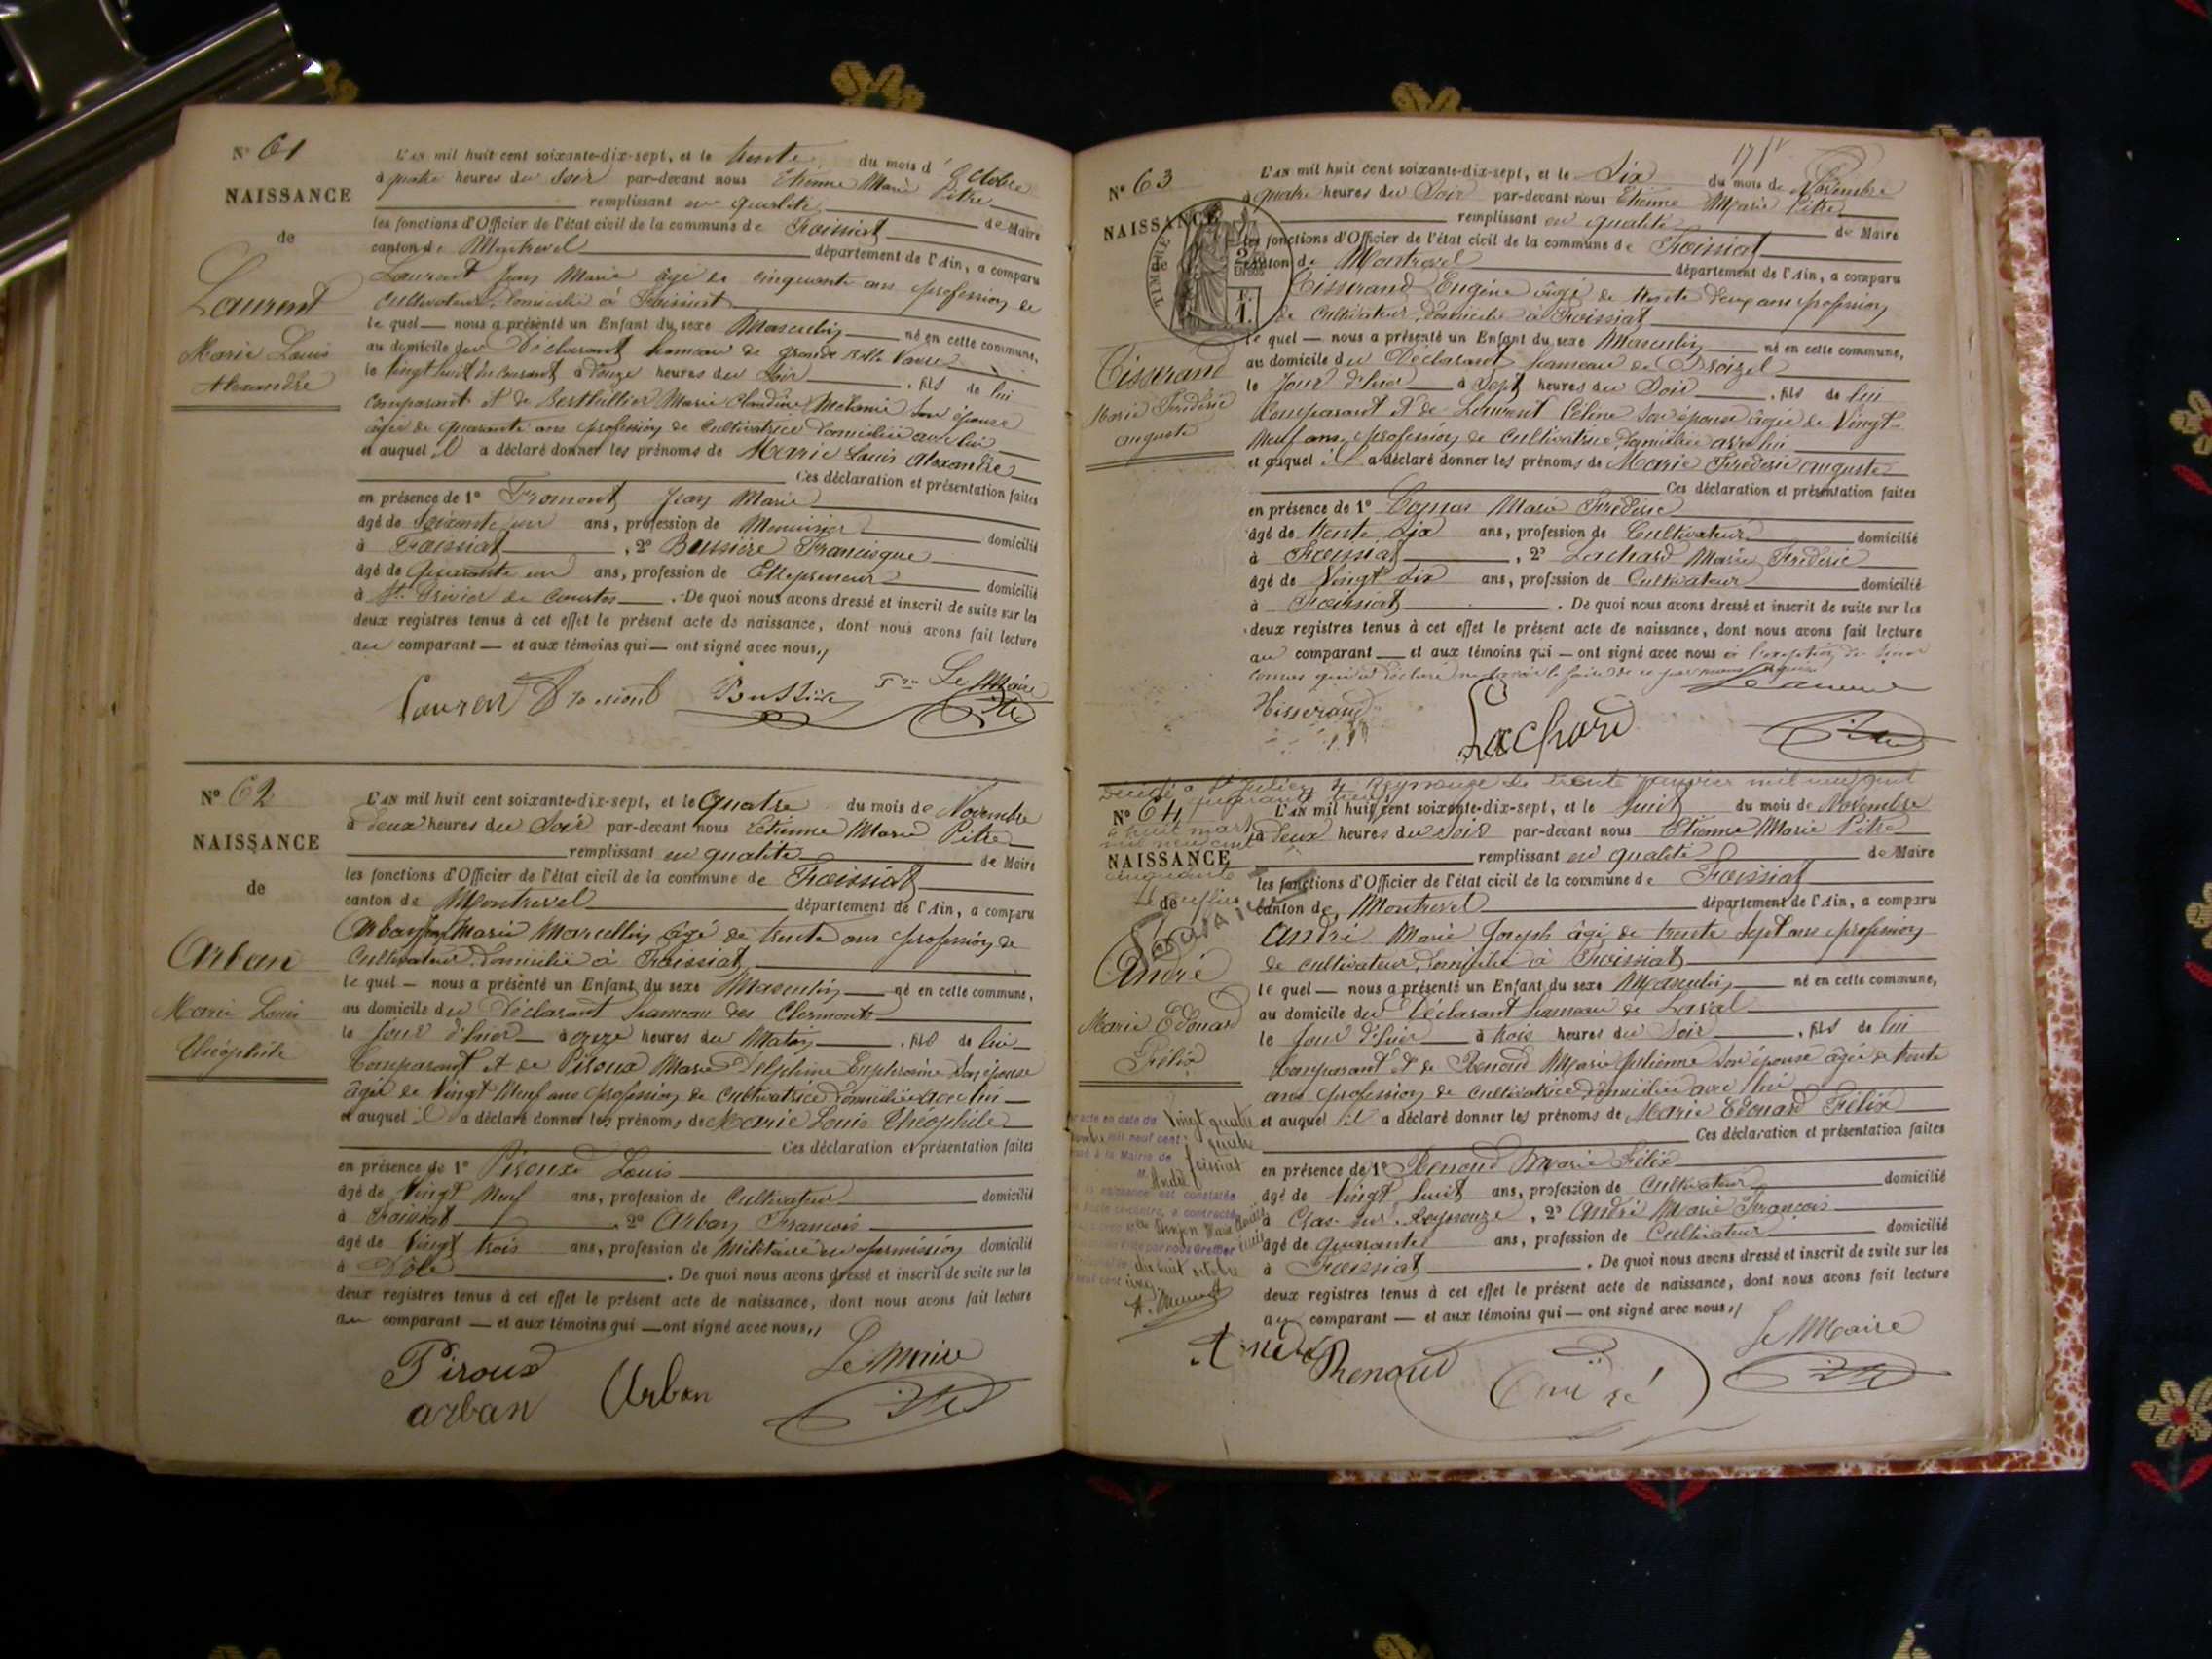 N° 61
NAISSANCE
de
Laurent
Marie Louis
Alexandre
L'AN mil huit cent soixante-dix-sept, et le trente du mois d'Octobre
à quatre heures du Soir par-devant nous Etienne Marie Pitre
remplissant en qualité de Maire
les fonctions d'Officier de l'état civil de la commune de Foissiat
canton de Montrevel département de l'Ain, a comparu
Laurent Jean Marie âgé de cinquante ans profession de
Cultivateur, domicilié à Foissiat
le quel — nous a présenté un Enfant du sexe Masculin né en cette commune,
au domicile du Déclarant hameau de Grande
le Vingt huit du courant à onze heures du Soir, fils de lui
Comparant et de Berthillier Marie Claudine Mélanie son épouse
âgée de quarante ans profession de Cultivatrice domiciliée avec lui
et auquel il a déclaré donner les prénoms de Marie Louis Alexandre
Ces déclaration et présentation faites
en présence de 1° Fromont Jean Marie
âgé de Soixante un ans, profession de Menuisier domicilié
à Foissiat, 2° Bussière Francisque
âgé de Quarante un ans, profession de domicilié
à St. Trivier de Courtes. De quoi nous avons dressé et inscrit de suite sur les
deux registres tenus à cet effet le présent acte de naissance, dont nous avons fait lecture
au comparant — et aux témoins qui — ont signé avec nous,,
Lauren Fromont Bussière Le Maire
N° 62
NAISSANCE
de
Arban
Marie Louis
Théophile
L'AN mil huit cent soixante-dix-sept, et le Quatre du mois de Novembre
à deux heures du Soir par-devant nous Etienne Marie Pitre
remplissant en qualité de Maire
les fonctions d'Officier de l'état civil de la commune de Foissiat
canton de Montrevel département de l'Ain, a comparu
Arban Marie Marcellin âgé de trente ans profession de
Cultivateur, domicilié à Foissiat
le quel — nous a présenté un Enfant du sexe Masculin — né en cette commune,
au domicile du Déclarant hameau des Clermonts
le Jour d'hier à onze heures du Matin, fils de lui
Comparant et de Piroux Marie Delphine Euphrosine son épouse
âgée de Vingt Neuf ans profession de Cultivatrice domiciliée avec lui
et auquel il a déclaré donner les prénoms de Marie Louis Théophile
Ces déclaration et présentation faites
en présence de 1° Piroux Louis
âgé de Vingt Neuf ans, profession de Cultivateur domicilié
à Foissiat, 2° Arban François
âgé de Vingt trois ans, profession de Militaire en permission domicilié
à Dôle. De quoi nous avons dressé et inscrit de suite sur les
deux registres tenus à cet effet le présent acte de naissance, dont nous avons fait lecture
au comparant — et aux témoins qui — ont signé avec nous,,
Piroux Arban Le Maire
arban
N° 63
NAISSANCE
TIMBRE
Tisserand
Marie Frédéric
auguste
L'AN mil huit cent soixante-dix-sept, et le Six du mois de Novembre
à quatre heures du Soir par-devant nous Etienne Marie Pitre
remplissant en qualité de Maire
les fonctions d'Officier de l'état civil de la commune de Foissiat
canton de Montrevel département de l'Ain, a comparu
Tisserand Eugène âgé de trente deux ans profession
de Cultivateur, domicilié à Foissiat
le quel — nous a présenté un Enfant du sexe Masculin né en cette commune,
au domicile du Déclarant hameau de
le Jour d'hier à Sept heures du Soir, fils de lui
Comparant et de Laurent Céline son épouse âgée de Vingt
Neuf ans, profession de Cultivatrice domiciliée avec lui
et auquel il a déclaré donner les prénoms de Marie Frédéric auguste
Ces déclaration et présentation faites
en présence de 1° Comas Marie Frédéric
âgé de trente six ans, profession de Cultivateur domicilié
à Foissiat, 2° Lachard Marie Frédéric
âgé de Vingt six ans, profession de Cultivateur domicilié
à Foissiat. De quoi nous avons dressé et inscrit de suite sur les
deux registres tenus à cet effet le présent acte de naissance, dont nous avons fait lecture
au comparant — et aux témoins qui — ont signé avec nous à l'exception du
Comas qui a déclaré ne savoir le faire de ce par nous requis
Tisserand Lachard
Décédé à St Julien s/ Reyssouze le trente Janvier mil neuf cent
N° 64
NAISSANCE
de
André
Marie Edouard
Félix
L'AN mil huit cent soixante-dix-sept, et le huit du mois de Novembre
à deux heures du soir par-devant nous Etienne Marie Pitre
remplissant en qualité de Maire
les fonctions d'Officier de l'état civil de la commune de Foissiat
canton de Montrevel département de l'Ain, a comparu
André Marie Joseph âgé de trente sept ans profession
de cultivateur, domicilié à Foissiat
le quel — nous a présenté un Enfant du sexe Masculin né en cette commune,
au domicile du Déclarant hameau de Laval
le Jour d'hier à trois heures du Soir, fils de lui
Comparant et de Renoud Marie Julienne son épouse âgée de trente
ans profession de Cultivatrice domiciliée avec lui
et auquel il a déclaré donner les prénoms de Marie Edouard Félix
Ces déclaration et présentation faites
en présence de 1° Renoud Marie Félix
âgé de Vingt huit ans, profession de Cultivateur domicilié
à Cras sur Reyssouze, 2° André Marie François
âgé de quarante ans, profession de Cultivateur domicilié
à Foissiat. De quoi nous avons dressé et inscrit de suite sur les
deux registres tenus à cet effet le présent acte de naissance, dont nous avons fait lecture
au comparant — et aux témoins qui — ont signé avec nous,,
André Renoud André Le Maire
acte en date du Vingt quatre
mil neuf cent quatre
à la Mairie de Foissiat
M. André
dix huit octobre